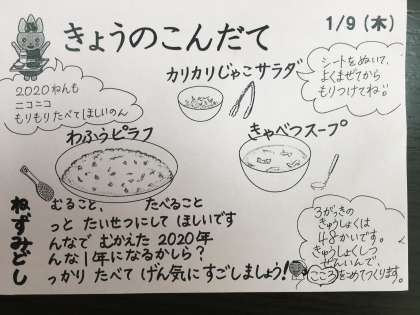 きょうのこんだて
1/9(木)
2020ねんも
ニコニコ
もりもりたべてほしいのん
カリカリじゃこサラダ
シートをぬいで、
よくまぜてから
もりつけてね。
わふうピラフ
きゃべつスープ
ねずみどし
むること、 たべること
っと たいせつにして ほしいです
んなで むかえた 2020年
んな1年になるかしら?
っかり たべて げん気に すごしましょう!
3がっきの
きゅうしょくは
48かいです。
きゅうしょくしつ
ぜんいんで、
こころをこめてつくります。